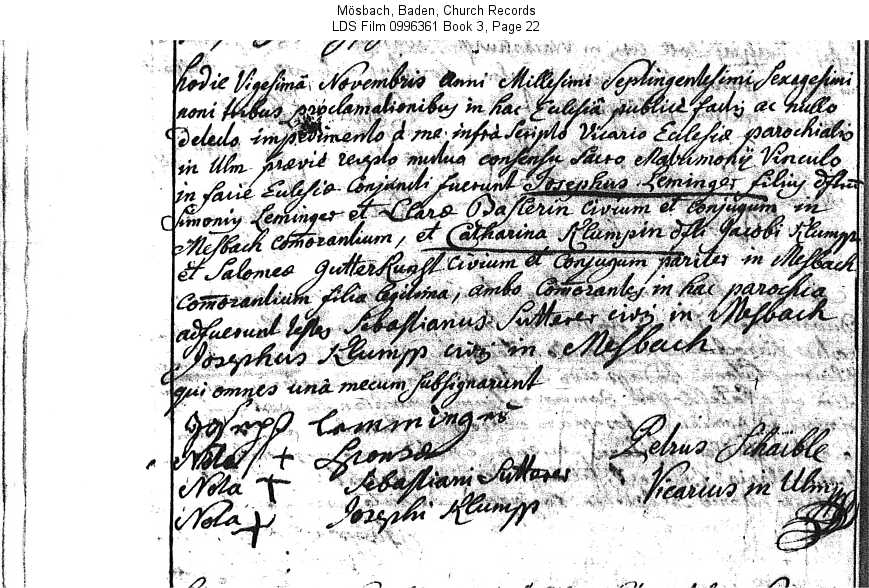 Mösbach, Baden, Church Records
LDS Film 0996361 Book 3, Page 22
hodie Vigesimâ Novembris anni Millesimi Septingentesimi Sexagesimi
noni tribus proclamationibus in hac Eclesiâ publicè factis ac nullo
detecto impedimento à me infrà Scripto Vicario Eclesiæ parochialis
in Ulm præviè mutuo consensu Sacro Matrimonij Vinculo
in facie Eclesiæ Conjuncti fuerunt Josephus Leminger filius
Simonis Leminger et Claræ Basterin civium et Conjugum in
Mesbach Comorantium, et Catharina Klumpin Jacobi Klumpp
et Salomeæ Gutterkunst civium et Conjugum pariter in Mesbach
Comorantium filia legitima, ambo Comorantes in hac parochia
adfuerunt testes Sebastianus Sutterer civis in Mesbach
Josephus Klumpp civis in Mesbach
qui omnes unà mecum subsignarunt
Joseph Lemminger
Nota + Sponsæ
Petrus Schäible
Nota + Sebastiani Sutterer
Vicarius in Ulm
Nota + Josephi Klumpp